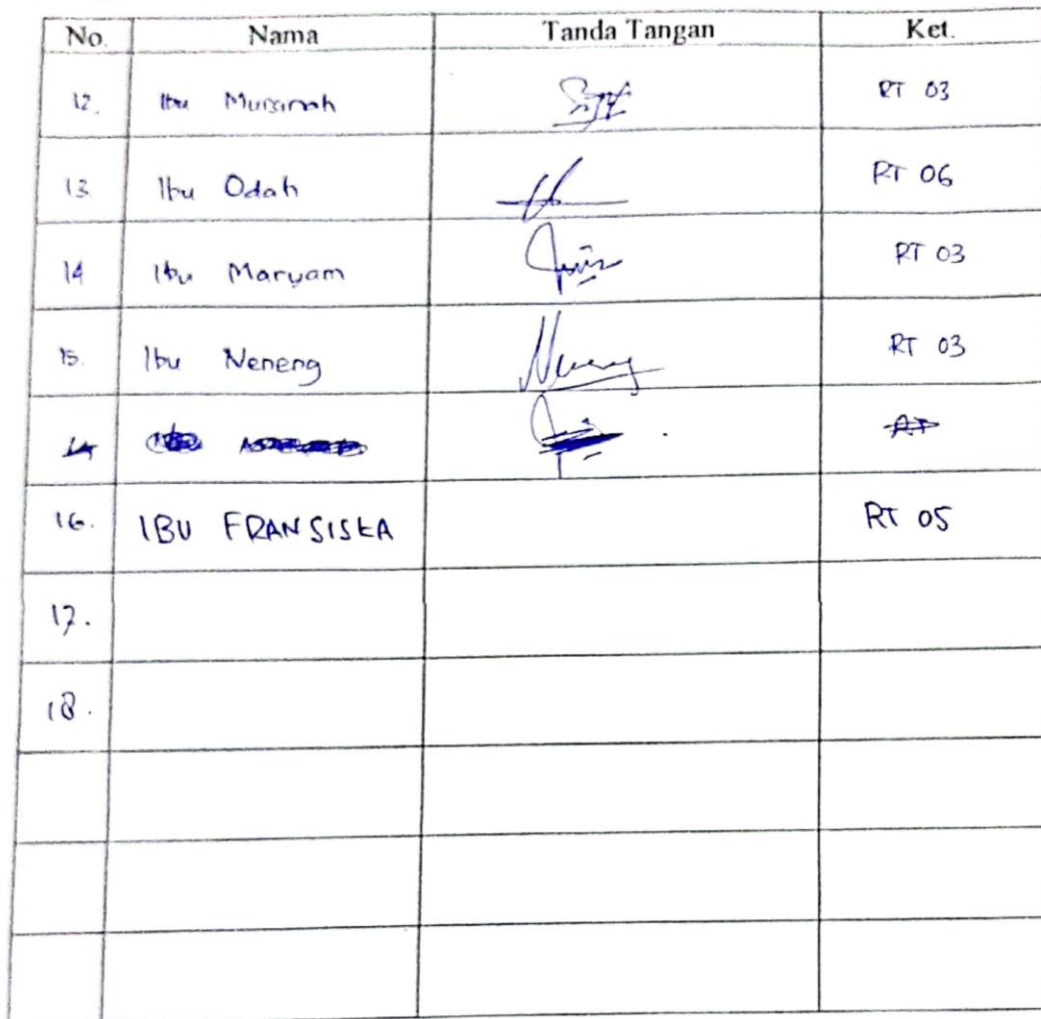 No. Nama Tanda Tangan Ket.
12. Ibu Mursinah RT 03
13 Ibu Odah RT 06
14 Ibu Maryam RT 03
15. Ibu Neneng Neneng RT 03
16. IBU FRANSISKA RT 05
17.
18.